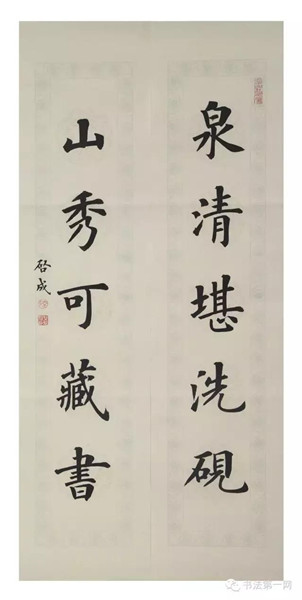 泉清堪洗硯
山秀可藏書
啓成
书法第一网